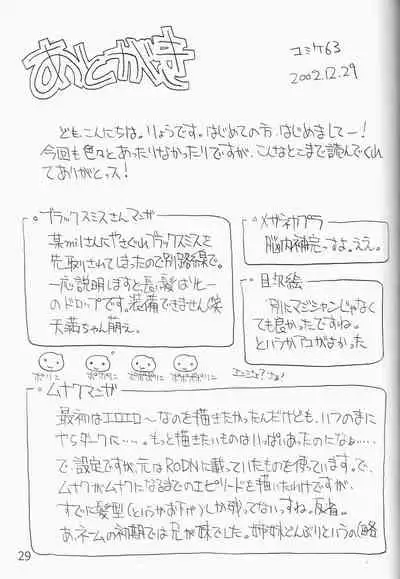 あとがき
コミケ63
2002.12.29
ども、こんにちは。りょうです。はじめての方、はじめましてー!
今回も色々とあったりなかったりですが、こんなとこまで読んでくれ
てありがとっス!
・ブラックスミスさんマンガ
某milさんにやさぐれブラックスミスを
先取りされてしまったので別路線で。
一応説明しますと長い髪はババー
のドロップです。装備できません(笑
天茄ちゃん萌え。
・メガネカプラ
脳内補完っすよ。ええ。
・目次絵
別にマジシャンじゃなく
ても良かったですね。
というかアコがよかった
ポリニ
ポポリニ
・ムナクマンガ
最初はエロエロ〜なのを描きたかったんだけども、いつのまに
やらダークに……。もっと描きたいものはいっぱいあったのになぁ……
で、設定ですが、元はRODNに載っていたものを使っています。で、
ムナクがムナクになるまでのエピソードを描いたわけですが、
すでに髪型(というかおさげ)しか残ってないっすね。反省。
あ、ネームの初期では兄が妹でした。姉妹どんぶりというの(略
29